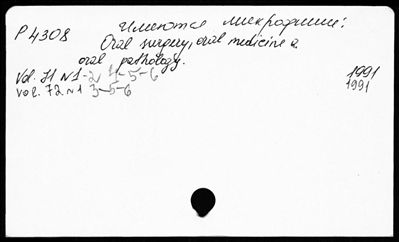 Имеются микрофиши:
P 4308
Oral surgery, oral medicine a
oral pathology.
Vol. 71 N 1-2, 4-5-6 1991
vol. 72 N 1 3-5-6 1991